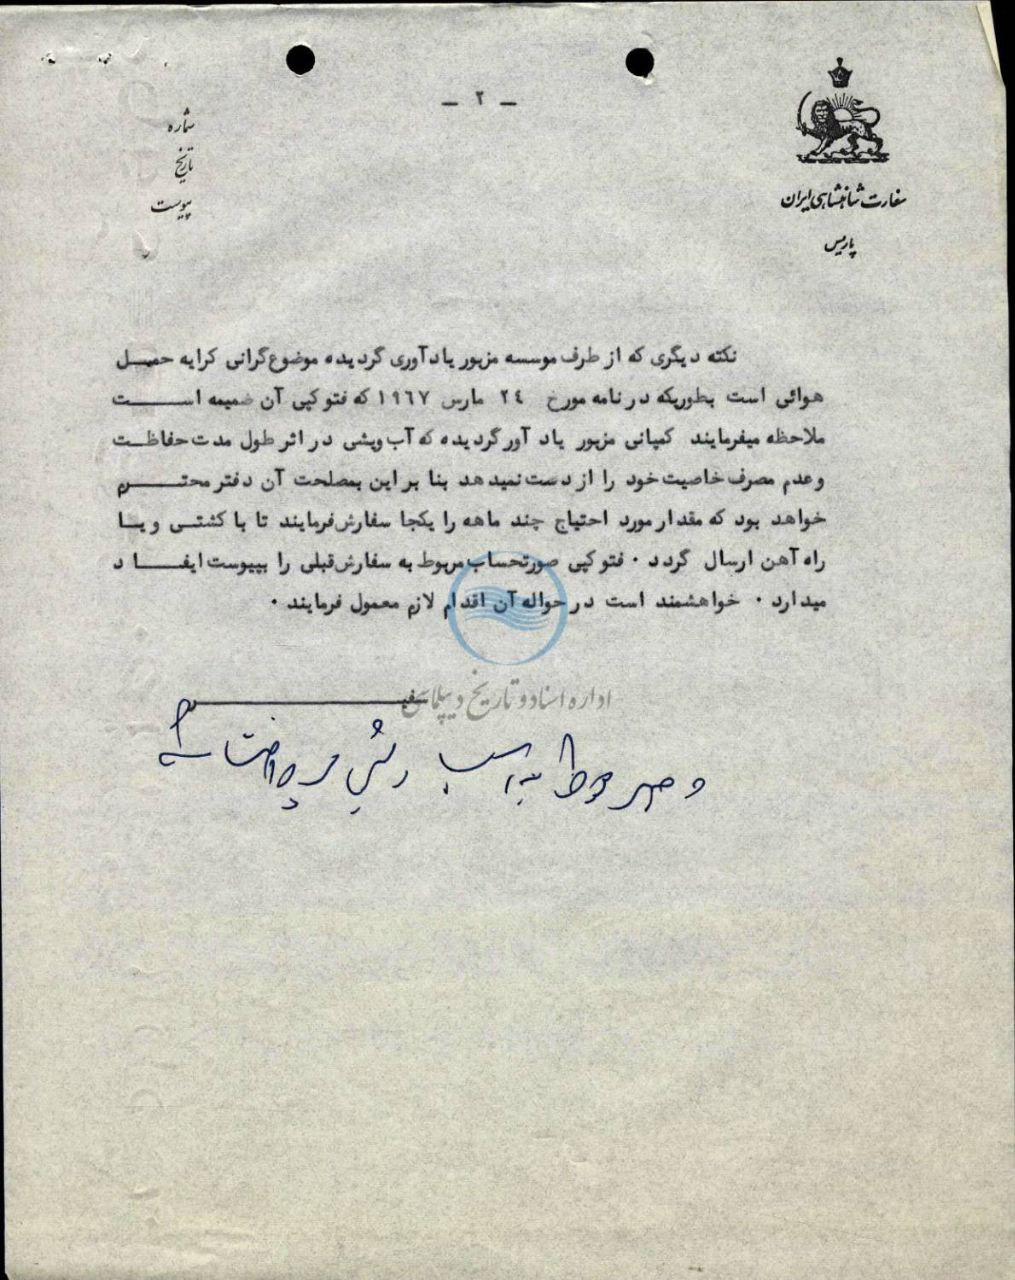 - ۲ -
شماره
تاریخ
پیوست
سفارت شاهنشاهی ایران
پاریس
نکته دیگری که از طرف موسسه مزبور یادآوری گردیده موضوع گرانی کرایه حمل
هوائی است بطوریکه در نامه مورخ ۲۴ مارس ۱۹۶۷ که فتوکپی آن ضمیمه است
ملاحظه میفرمایند کمپانی مزبور یاد آور گردیده که آب ویشی در اثر طول مدت حفاظت
و عدم مصرف خاصیت خود را از دست نمیدهد بنا بر این بمصلحت آن دفتر محترم
خواهد بود که مقدار مورد احتیاج چند ماهه را یکجا سفارش فرمایند تا با کشتی و یا
راه آهن ارسال گردد . فتوکپی صورتحساب مربوط به سفارش قبلی را بپیوست ایفاد
میدارد . خواهشمند است در حواله آن اقدام لازم معمول فرمایند .
سفیر
اداره اسناد و تاریخ دیپلماسی